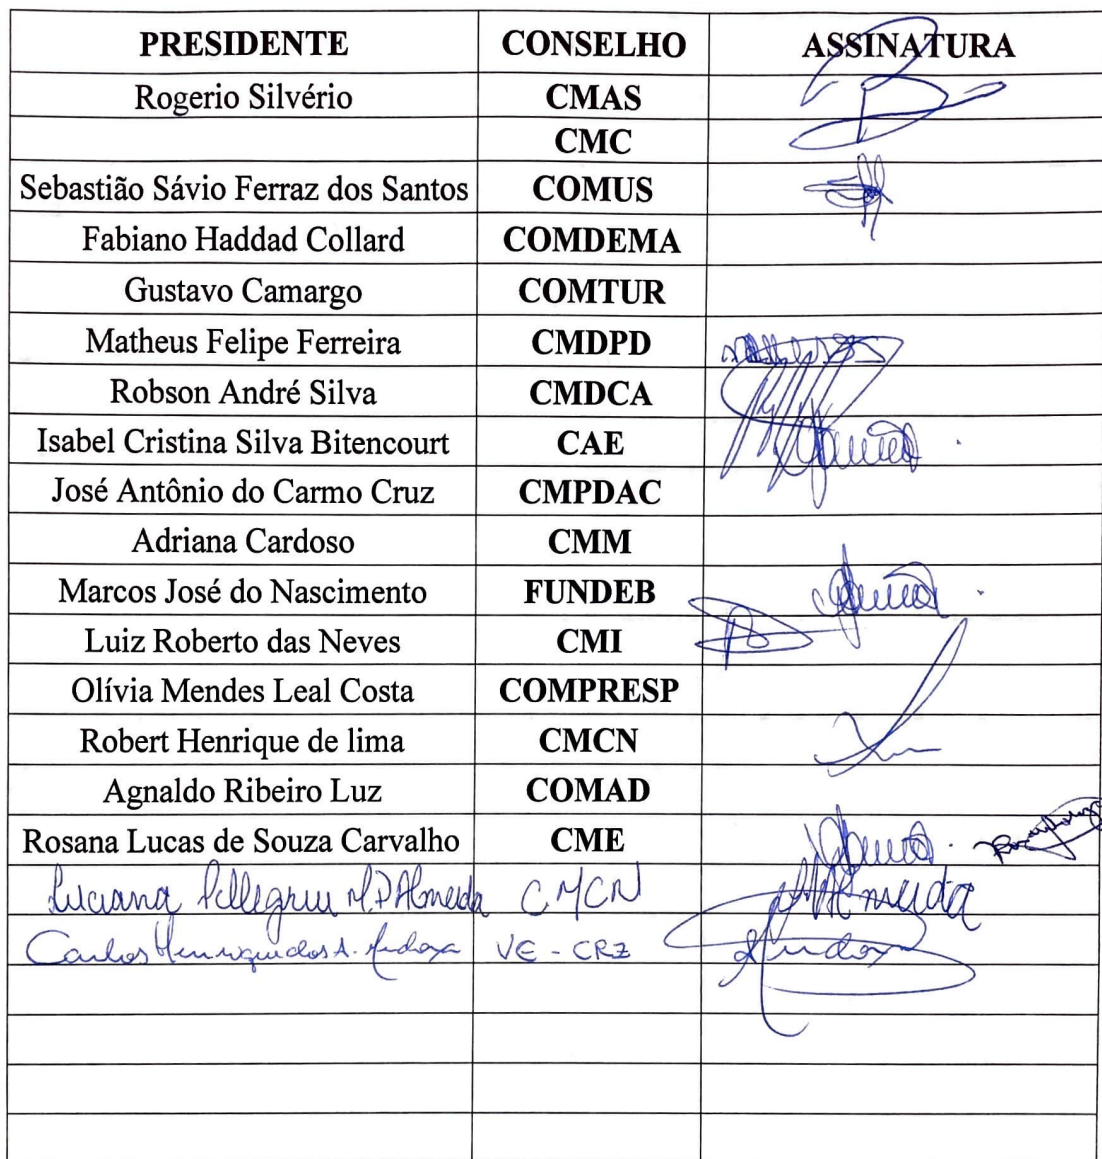 PRESIDENTE CONSELHO ASSINATURA
Rogerio Silvério CMAS
CMC
Sebastião Sávio Ferraz dos Santos COMUS
Fabiano Haddad Collard COMDEMA
Gustavo Camargo COMTUR
Matheus Felipe Ferreira CMDPD
Robson André Silva CMDCA
Isabel Cristina Silva Bitencourt CAE
José Antônio do Carmo Cruz CMPDAC
Adriana Cardoso CMM
Marcos José do Nascimento FUNDEB
Luiz Roberto das Neves CMI
Olívia Mendes Leal Costa COMPRESP
Robert Henrique de lima CMCN
Agnaldo Ribeiro Luz COMAD
Rosana Lucas de Souza Carvalho CME
Luciana CMCN Almeida
Carlos Henrique dos A. VE - CRZ